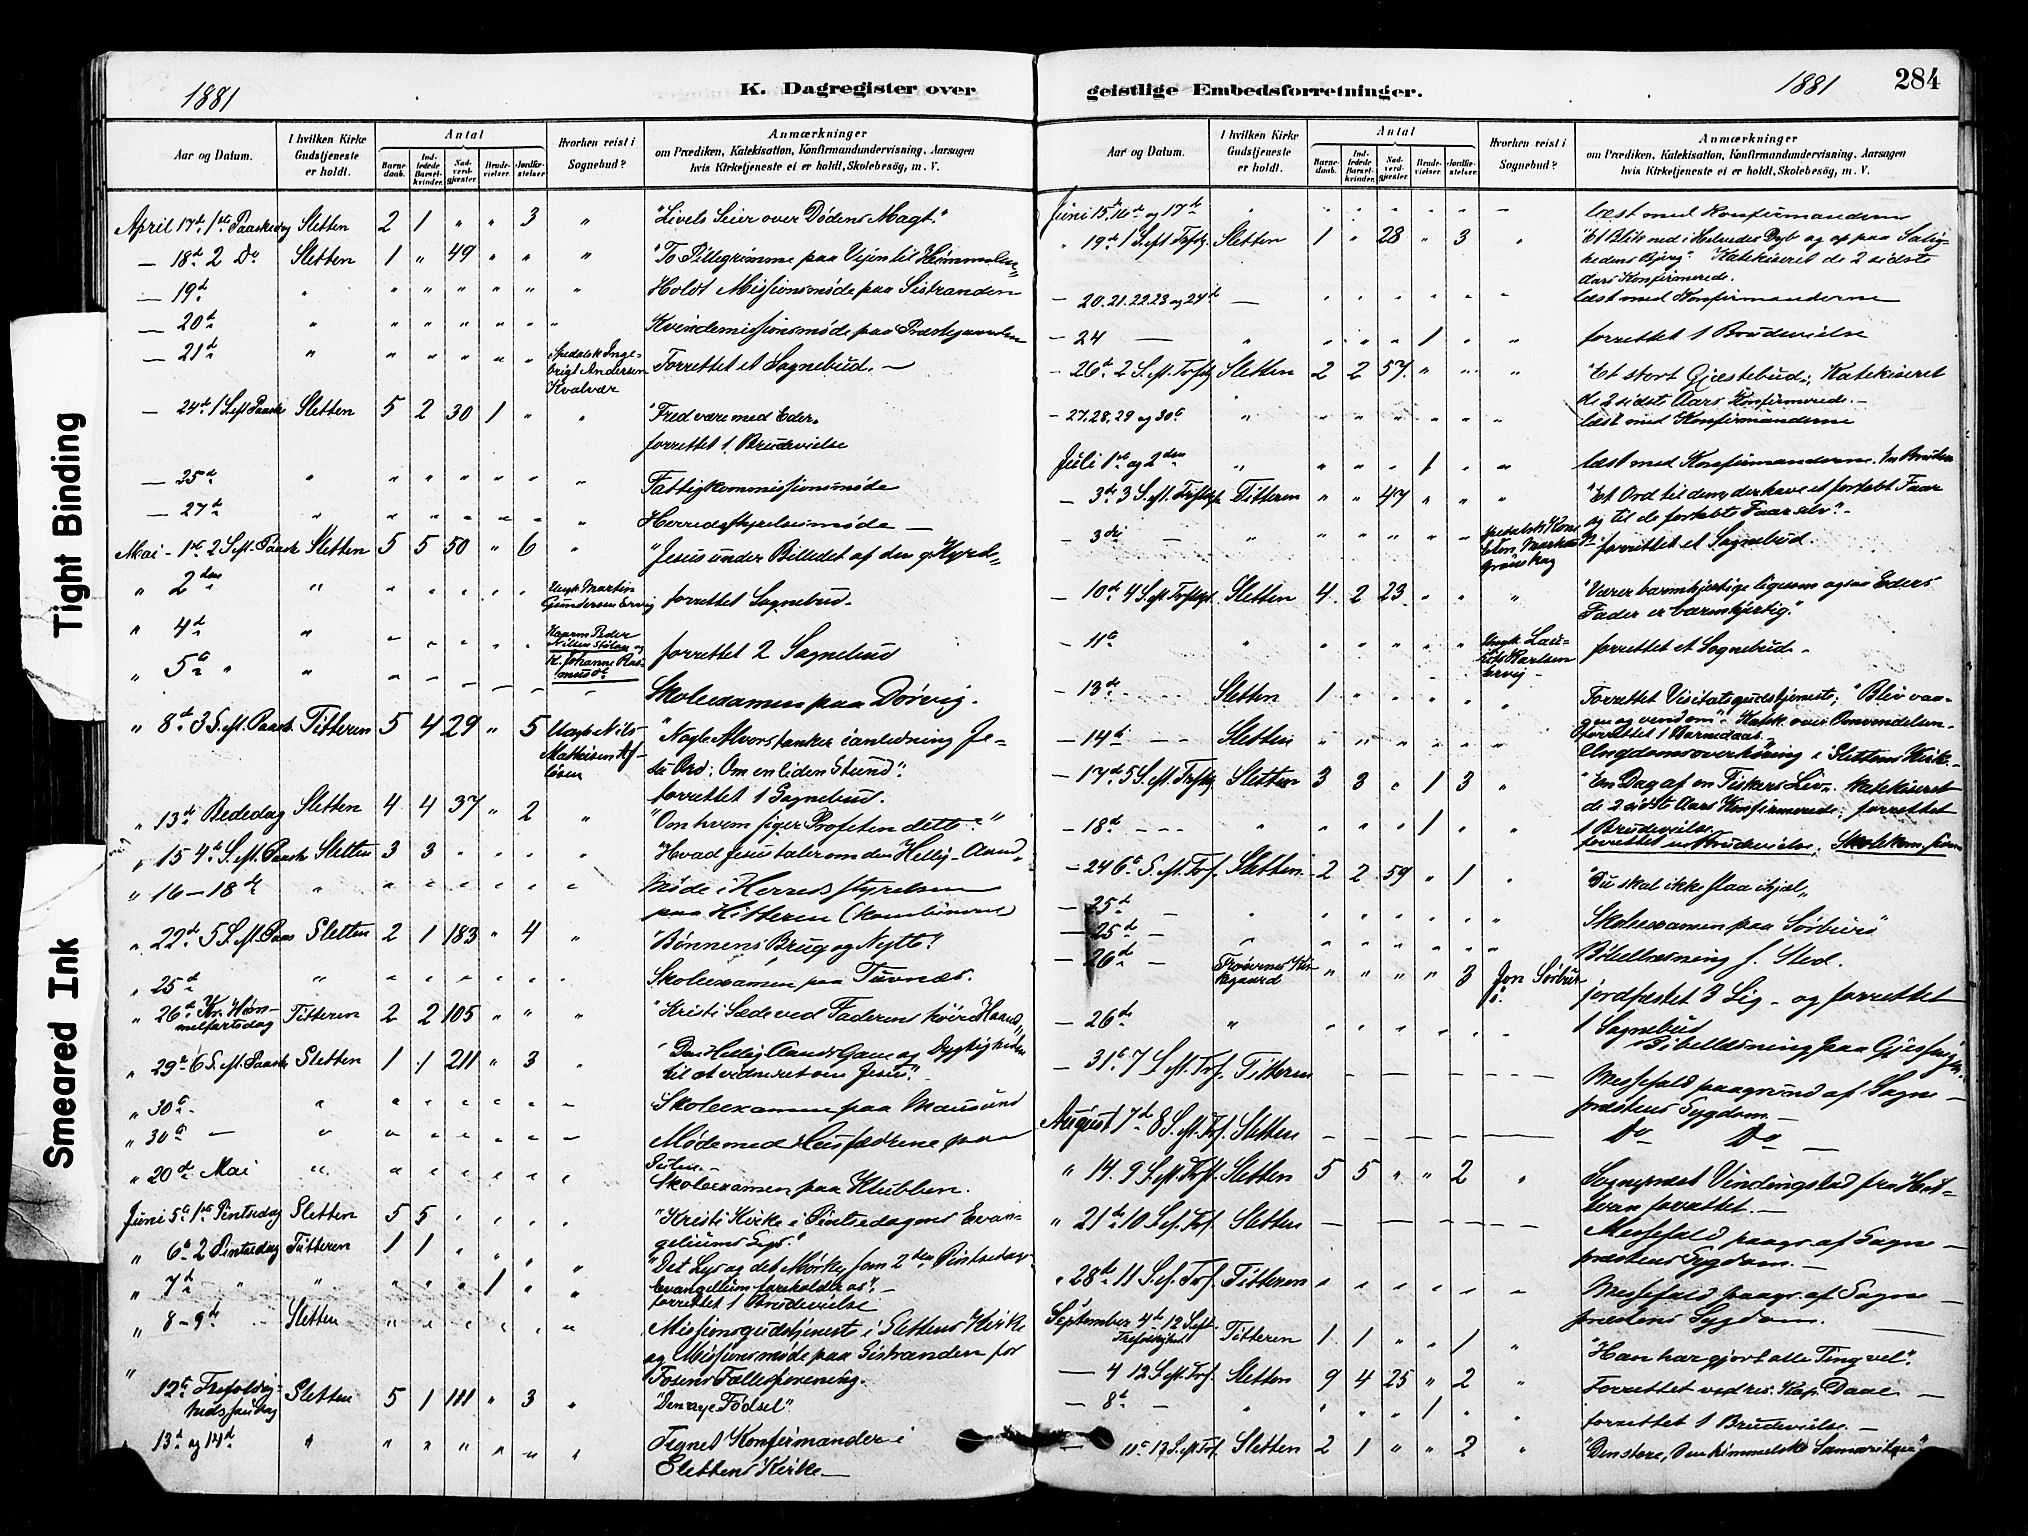 1881
K. Dagregister over
Aar og Datum.
I hvilken Kirke Gudstjeneste er holdt.
Antal
Barnedaab.
Indledede Barselkvinder.
Nadverdgjester.
Brudevielser.
Jordfæstelser
Hvorhen reist i Sognebud?
Anmærkninger
om Prædiken, Katekisation, Konfirmandundervisning, Aarsagen
hvis Kirketjeneste ei er holdt, Skolebesög, m. V.
April 17de 1ste Paaskedag Sletten 2 1 " " 3 " "Livets Seier over Dødens Magt."
— 18de 2 Do Sletten 1 " 49 " " " "To Pillegrimme paa Vejen til Himmelen"
— 19de " " " " " " " Holdt Missionsmøde paa Sistranden
— 20de " " " " " " " Kvindemissionsmøde paa Præstegaarden
— 21de " " " " " " Spedalsk Inge-
brigt Andersen
Kvalvær
Forrettet et Sognebud. —
— 24de 1 S. eft. Paaske Sletten 5 2 30 1 " " "Fred være med Eder"
forrettet 1 Brudevielse
— 25de " " " " " " " Fattigkommissionsmøde
— 27de " " " " " " " Herredsstyrelsemøde —
Mai — 1ste 2 S. eft. Paaske Sletten 5 5 50 " 6 " "Jesus under Billedet af den g. Hyrde"
" 2den " " " " " " Martin
Gundersen Ervig
forrettet Sognebud.
" 4de " " " " " " Peder
Nilsen
" 5te " " " " " " " K. Johanne Ras-
forrettet 2 Sognebud
Skoleexamen paa Dørvig.
" 8de 3 S. eft. Paaske Titteren 5 4 29 " 5 Nils
Mathisen
"Nogle Alvorstanker i anledning Je-
su Ord: Om en liden Stund".
forrettet 1 Sognebud.
" 13de Bededag Sletten 4 4 37 " 2 " "Om hvem siger Profeten dette?"
" 15 4de S. eft. Paaske Sletten 3 3 " " " " "Hvad Jesus taler om den Hellig-Aand"
" 16—18de " " " " " " " Møde i Herredsstyrelsen
paa Hitteren (kombineret)
" 22de 5 S. eft. Paas Sletten 2 1 183 " 4 " "Bønnens Brug og Nytte".
" 25de " " " " " " " Skoleexamen paa Tuvnæs.
" 26de Kr. Him-
melfartsdag Titteren 2 2 105 " " " "Kristi Sæde ved Faderens høire Haand"
" 29de 6 S. eft. Paaske Sletten 1 1 211 " 3 " "Den Hellig Aands Gave og Dygtighed
til at vidne ret om Jesus".
" 30te " " " " " " " Skoleexamen paa Mausund
" 30te — " " " " " " " Møde med Husfædrene paa
" 20de Mai " " " " " " " Skoleexamen paa Klubben.
Juni 5te 1ste Pintsedag Sletten 5 5 " " " " "Kristi Kirke i Pintsedagens Evan-
geliums Lys."
" 6te 2 Pintsedag Titteren 1 1 " " " " "Det Lys og det Mørke, som 2den Pintsedags
Evangelium foreholder os". —
" 7de " " " " " 1 " " forrettet 1 Brudevielse
" 8—9de Sletten " " " " " " Missionsgudstjeneste i Slettens Kirke
og Missionsmøde paa Sistranden for
Fosens Fællesforening.
" 12te Trefoldig-
hedssøndag Sletten 5 1 111 " 3 " "Den nye Fødsel"
13de og 14de " " " " " " " Tegnet Konfirmander i
Slettens Kirke —
geistlige Embedsforretninger.
1881
284
Aar og Datum.
I hvilken Kirke Gudstjeneste er holdt.
Antal
Barnedaab.
Indledede Barselkvinder.
Nadverdgjester.
Brudevielser.
Jordfæstelser.
Hvorhen reist i Sognebud?
Anmærkninger
om Prædiken, Katekisation, Konfirmandundervisning, Aarsagen
hvis Kirketjeneste ei er holdt, Skolebesög, m. V.
Juni 15, 16de og 17de " " " " " " — læst med Konfirmanderne
" 19de 1 S. eft Trefh. Sletten 1 " 28 " 3 " "Et Blik ned i Helvedes Dyb og op paa Salig-
hedens Bjerg". Katekiseret de 2 sidste
Aars Konfirmerede.
— 20, 21, 22, 23 og 24de — " " " " " " læst med Konfirmanderne
— 24 — " " " " 1 " " forrettet 1 Brudevielse
— 26de 2 S. eft. Trefh. Sletten 2 2 57 " " " "Et stort Gjæstebud". Katekiseret
de 2 sidst Aars Konfirmerede. —
— 27, 28, 29 og 30te " " " " " " " læst med Konfirmanderne
Juli 1ste og 2den " " " " 1 " " læst med Konfirmanderne.
— 3die 3 S. eft. Trefh. Titteren " " 47 " " " "Et Ord til dem, der have et fortabt Faar
og til de fortabte Faar selv". —
— 3die — " " " " " " Spedalsk
forrettet et Sognebud.
— 10de 4 S. eft Trefh. Sletten 4 2 23 " " " "Værer barmhjertige ligesom ogsaa Eders
Fader er barmhjertig".
— 11te " " " " " " Lau-
rits Karlsen
Ervig
forrettet et Sognebud. —
— 13de Sletten 1 " " " " " Forrettet Visitatsgudstjeneste; "Bliv vaa-
gen og vend om". Katek. over Omvendelsen
forrettet 1 Barnedaab.
— 14de — — Sletten " " " " " " Ungdomsoverhøring i Slettens Kirke. —
— 17de 5 S. eft. Trefh. Sletten 3 3 " 1 3 " "En Dag af en Fiskers Liv". Katekiseret
de 2 sidste Aars Konfirmerede; forrettet
1 Brudevielse
— 18de — — " " " " 1 " " forrettet en Brudevielse,
— 24 6te S. eft. Tref. Sletten 2 2 59 " 1 " "Du skal ikke slaa ihjel"
— 25de — " " " " " " " Skoleexamen paa Sørburø
— 25de — " " " " " " " Bibellæsning s. Sted.
— 26de — Froøvenes Kir-
kegaard " " " " 3 Jon Sørbur-
ø. jordfæstet 3 Lig — og forrettet
1 Sognebud
— 26de " " " " " " " Bibellæsning paa
— 31te 7 S. eft. Tref. Titteren — — — — — — Messefald paagrund af Sogne-
præstens Sygdom —
August 7de 8 S. eft. Tref. Sletten — — — — — — Do Do —
" 14. 9 S. eft. Tref. Sletten 5 5 " " 2 " Sognepræst Vindingstad fra
forrettet. —
" 21de 10 S. eft. Tref. Sletten — — — — — — Messefald paagr. af Sogne-
præstens Sygdom. —
" 28de 11 S. ef. Tref. Titteren " " " " " " Messefald paagr. af Sogne-
præstens Sygdom. —
September 4de 12 S. eft.
Trefoldighed Titteren 1 1 " " 1 " "Han har gjort alle Ting vel".
— 4 12 S. eft. Tref. Sletten 9 4 25 " 2 " Forrettet ved res. Kap. Daae —
— 8de — " " " " 1 " " forrettet 1 Brudevielse. —
— 11te 13 S. eft Tref. Sletten 2 1 " " 2 " "Den store, den himmelske Samaritan".
Tight Binding
Smeared Ink